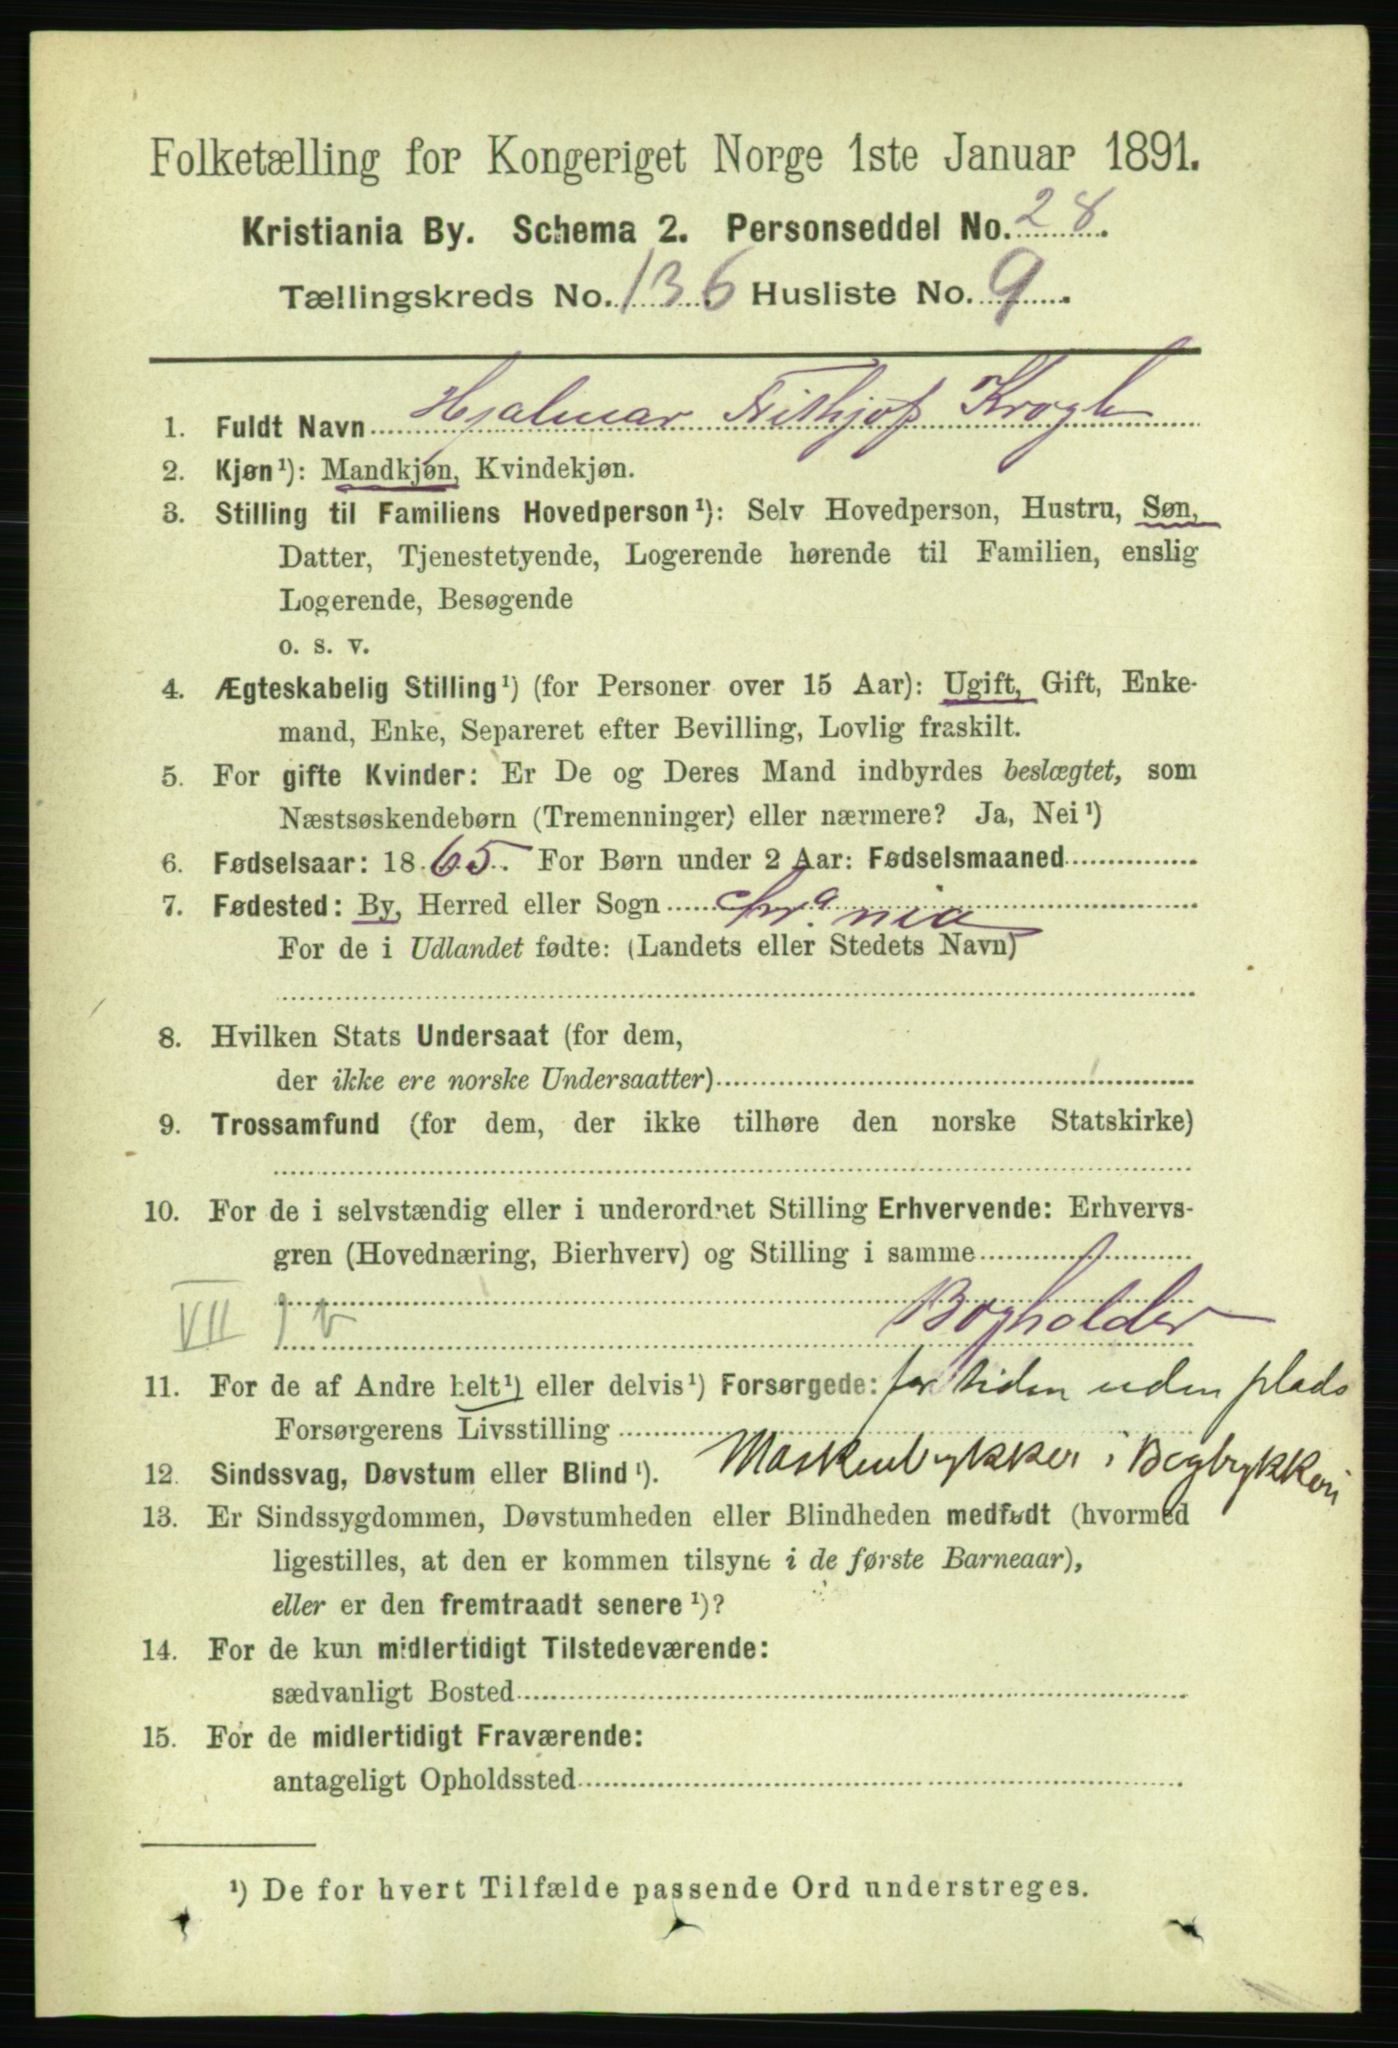 Folketælling for Kongeriget Norge 1ste Januar 1891.
Kristiania By. Schema 2. Personseddel No. 28.
Tællingskreds No. 136 Husliste No. 9.
1. Fuldt Navn Hjalmar Frithjof Krogh
2. Kjøn¹): Mandkjøn, Kvindekjøn.
3. Stilling til Familiens Hovedperson¹): Selv Hovedperson, Hustru, Søn,
Datter, Tjenestetyende, Logerende hørende til Familien, enslig
Logerende, Besøgende
o. s. v.
4. Ægteskabelig Stilling¹) (for Personer over 15 Aar): Ugift, Gift, Enke-
mand, Enke, Separeret efter Bevilling, Lovlig fraskilt.
5. For gifte Kvinder: Er De og Deres Mand indbyrdes beslægtet, som
Næstsøskendebørn (Tremenninger) eller nærmere? Ja, Nei¹)
6. Fødselsaar: 1865. For Børn under 2 Aar: Fødselsmaaned
7. Fødested: By, Herred eller Sogn Chr.a nia
For de i Udlandet fødte: (Landets eller Stedets Navn)
8. Hvilken Stats Undersaat (for dem,
der ikke ere norske Undersaatter)
9. Trossamfund (for dem, der ikke tilhøre den norske Statskirke)
10. For de i selvstændig eller i underordnet Stilling Erhvervende: Erhvervs-
gren (Hovednæring, Bierhverv) og Stilling i samme
VII
Bogholder
11. For de af Andre helt¹) eller delvis¹) Forsørgede: for tiden uden plads
Forsørgerens Livsstilling
Maskentrykker i Bogtrykkeri
12. Sindssvag, Døvstum eller Blind¹).
13. Er Sindssygdommen, Døvstumheden eller Blindheden medfødt (hvormed
ligestilles, at den er kommen tilsyne i de første Barneaar),
eller er den fremtraadt senere¹)?
14. For de kun midlertidigt Tilstedeværende:
sædvanligt Bosted
15. For de midlertidigt Fraværende:
antageligt Opholdssted
¹) De for hvert Tilfælde passende Ord understreges.